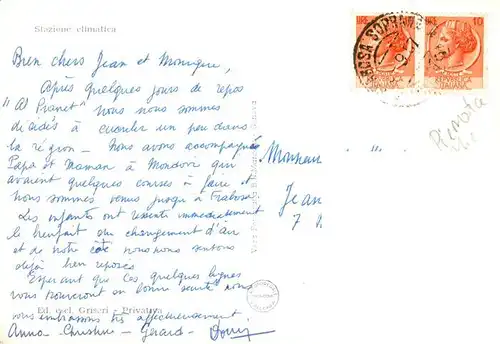 Stazione climatica
Bien chers Jean et Monique,
Après quelques jours de repos
"Al Pranet" nous nous sommes
décidés à circuler un peu dans
la région - Nous avons accompagné
Papa et Maman à Mondovi qui
avaient quelques courses à faire et
nous sommes venus jusqu'à Frabosa.
Les enfants ont ressenti immédiatement
le bienfait du changement d'air
et de notre côté nous nous sentons
déjà bien reposés
Espérant que ces quelques lignes
vous trouveront en bonne santé nous
vous embrassons très affectueusement
Anna - Christine - Gérard -
Ed. escl. Griseri - Privativa
Vera Fotografia
LIRE 10
FRABOSA SOPRANA
Monsieur
Jean
7